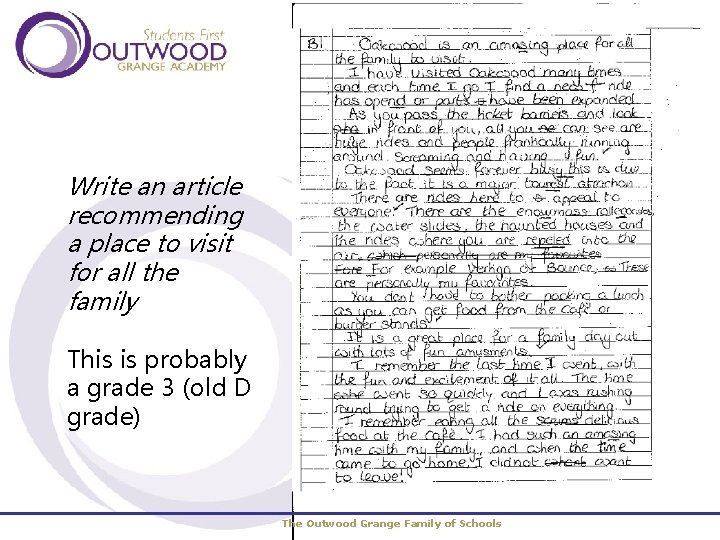 Students First
OUTWOOD
GRANGE ACADEMY
Write an article
recommending
a place to visit
for all the
family
This is probably
a grade 3 (old D
grade)
B1 Oakwood is an amazing place for all
the family to visit.
I have visited Oakwood many times
and each time I go I find a new ride
has opend or parts have been expanded.
As you pass the ticket barriers and look
in front of you, all you can see are
huge rides and people frantically running
around. Screaming and having fun.
Oakwood seems forever busy this is due
to the fact, it is a major tourest attraction
There are rides here to appeal to
everyone. There are the enourmass rollercoasters,
the water slides, the haunted houses and
the rides where you are repeled into the
air, which personally are my favourites
Fore For example Vertigo or Bounce, These
are personally my favourites.
You dont have to bother packing a lunch
as you can get food from the café or
burger stands.
It is a great place for a family day out
with lots of fun amusments.
I remember the last time I went, with
the fun and excitement of it all. The time
went so quickly and I was rushing
round trying to get a ride on everything.
I remember eating all the delicious
food at the café. I had such an amazing
time with my family, and when the time
came to go home, I did not want
to leave!
The Outwood Grange Family of Schools